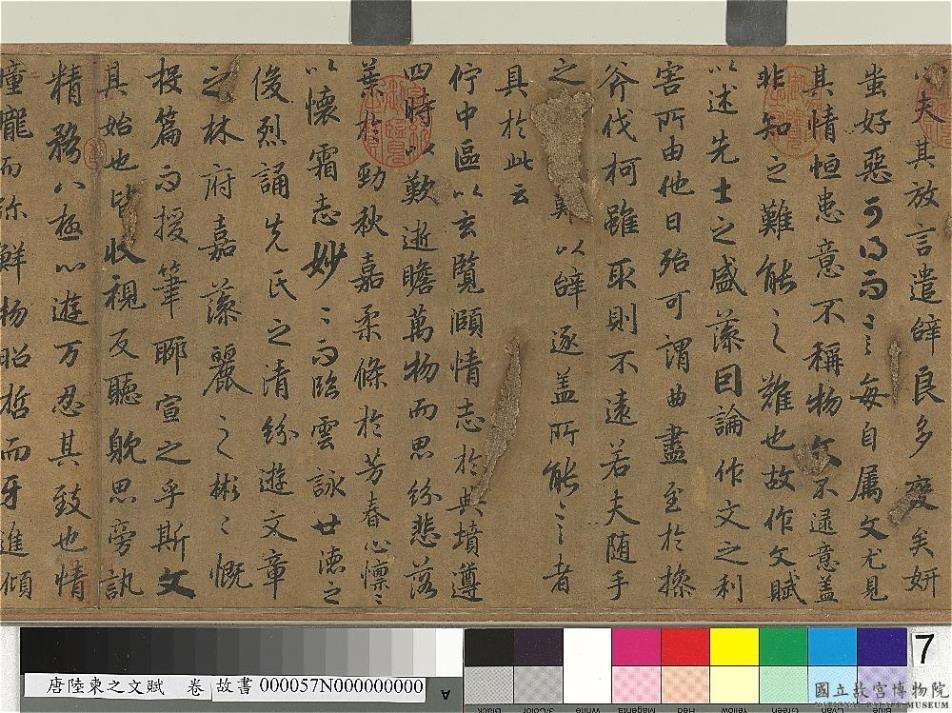 夫其放言遣辭良多變矣妍
蚩好惡可得而言每自属文尤見
其情恒患意不稱物文不逮意盖
非知之難能之難也故作文賦
以述先士之盛藻因論作文之利
害所由他日殆可謂曲盡至於操
斧伐柯雖取則不遠若夫随手
之 以辭逐盖所能言者
具於此云
佇中區以玄覽頤情志於典墳遵
四時以歎逝瞻萬物而思紛悲落
葉於勁秋嘉柔條於芳春心懔〻
以懷霜志妙〻而臨雲詠世徳之
俊烈誦先氏之清紛遊文章
之林府嘉藻麗之彬〻慨
投篇而授筆聊宣之乎斯文
其始也皆收視反聽躭思旁訊
精務八極心遊万忍其致也情
曈曨而弥鮮物昭晢而牙進傾
唐陸東之文賦 卷 故書 000057N000000000
A
7
國立故宮博物院
NATIONAL PALACE MUSEUM
Black
3-Color
White
Magenta
Red
Yellow
Green
Cyan
Blue